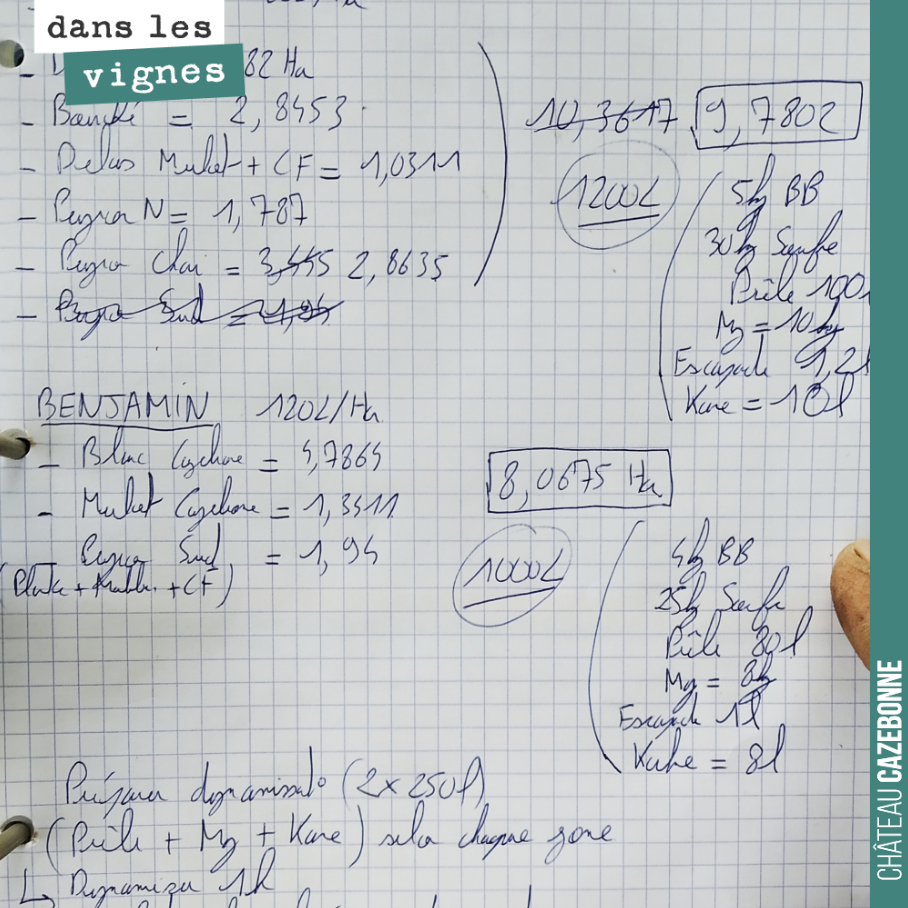 dans les
vignes
82 Ha
- = 2,8453
- Delas Merlot + CF = 1,0311
- Peyron N = 1,787
- Peyron Chai = 3,445 2,8635
- Peyron Sud = 1,94
10,3617 9,7802
1200L
5kg BB
30kg Soufre
Prêle 100
Mg = 10kg
Escapade 1,2l
Kare = 10l
BENJAMIN 120L/Ha
- Blanc Cazebone = 4,7864
- Merlot Cazebone = 1,3411
Peyron Sud = 1,94
+ CF)
8,0675 Ha
1000L
4kg BB
25kg Soufre
Prêle 80l
Mg = 8kg
Escapade 1l
= 8l
Préparer dynamisat° (2x250l)
(Prêle + Mg + Kare) selon chaque zone
↳ Dynamiser 1h
CHÂTEAU CAZEBONNE